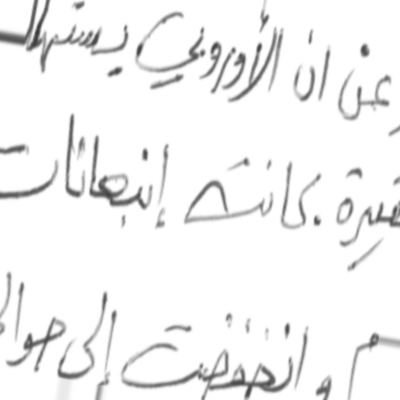 عن ان الأوروبي يستهلا
كانت إنبعاثات
و انخفضت إلى حوا